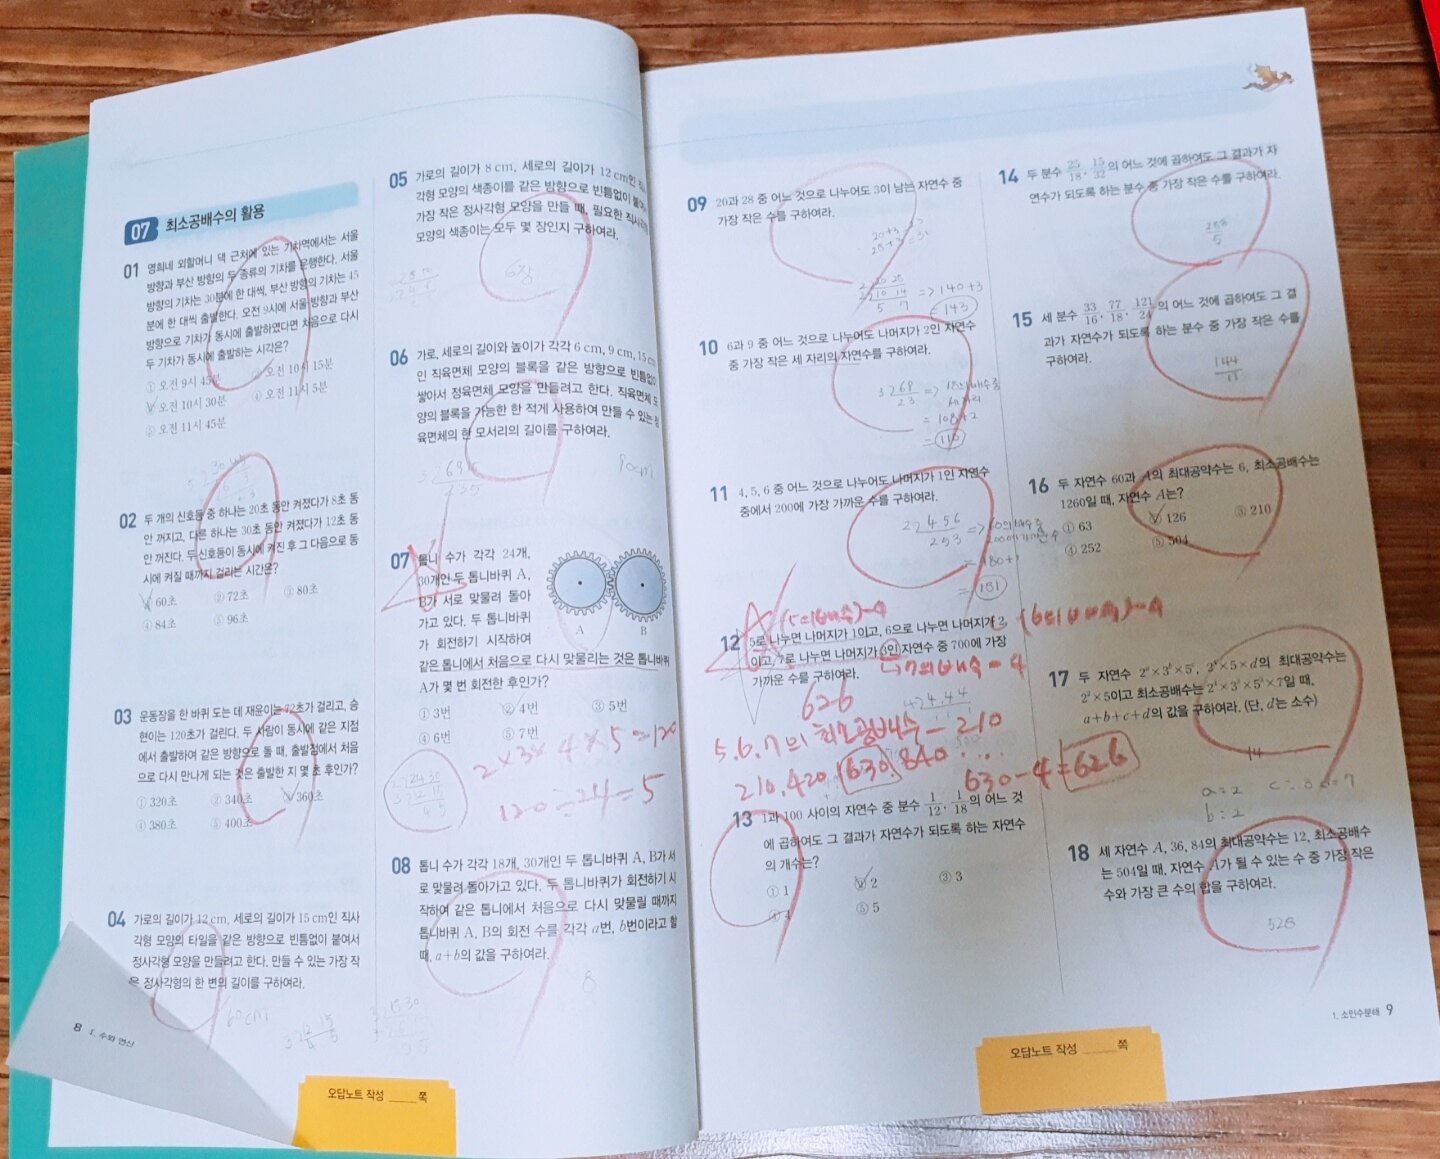 07 최소공배수의 활용
01 영희네 외할머니 댁 근처에 있는 기차역에서는 서울
방향과 부산 방향의 두 종류의 기차를 운행한다. 서울
방향의 기차는 30분에 한 대씩, 부산 방향의 기차는 45
분에 한 대씩 출발한다. 오전 9시에 서울 방향과 부산
방향으로 기차가 동시에 출발하였다면 처음으로 다시
두 기차가 동시에 출발하는 시각은?
① 오전 9시 45분 ② 오전 10시 15분
③ 오전 10시 30분 ④ 오전 11시 5분
⑤ 오전 11시 45분
02 두 개의 신호등 중 하나는 20초 동안 켜졌다가 8초 동
안 꺼지고, 다른 하나는 30초 동안 켜졌다가 12초 동
안 꺼진다. 두 신호등이 동시에 켜진 후 그 다음으로 동
시에 켜질 때까지 걸리는 시간은?
① 60초 ② 72초 ③ 80초
④ 84초 ⑤ 96초
03 운동장을 한 바퀴 도는 데 재윤이는 72초가 걸리고, 승
현이는 120초가 걸린다. 두 사람이 동시에 같은 지점
에서 출발하여 같은 방향으로 돌 때, 출발점에서 처음
으로 다시 만나게 되는 것은 출발한 지 몇 초 후인가?
① 320초 ② 340초 ③ 360초
④ 380초 ⑤ 400초
04 가로의 길이가 12 cm, 세로의 길이가 15 cm인 직사
각형 모양의 타일을 같은 방향으로 빈틈없이 붙여서
정사각형 모양을 만들려고 한다. 만들 수 있는 가장 작
은 정사각형의 한 변의 길이를 구하여라.
60cm
8 Ⅰ. 수와 연산
05 가로의 길이가 8 cm, 세로의 길이가 12 cm인 직
각형 모양의 색종이를 같은 방향으로 빈틈없이
가장 작은 정사각형 모양을 만들 때, 필요한 직사각
모양의 색종이는 모두 몇 장인지 구하여라.
6장
06 가로, 세로의 길이와 높이가 각각 6 cm, 9 cm, 15 cm
인 직육면체 모양의 블록을 같은 방향으로 빈틈없이
쌓아서 정육면체 모양을 만들려고 한다. 직육면체 모
양의 블록을 가능한 한 적게 사용하여 만들 수 있는 정
육면체의 한 모서리의 길이를 구하여라.
90cm
07 톱니 수가 각각 24개,
30개인 두 톱니바퀴 A,
B가 서로 맞물려 돌아
가고 있다. 두 톱니바퀴
가 회전하기 시작하여
A B
같은 톱니에서 처음으로 다시 맞물리는 것은 톱니바퀴
A가 몇 번 회전한 후인가?
① 3번 ② 4번 ③ 5번
④ 6번 ⑤ 7번
2×3×4×5=120
120÷24=5
08 톱니 수가 각각 18개, 30개인 두 톱니바퀴 A, B가 서
로 맞물려 돌아가고 있다. 두 톱니바퀴가 회전하기 시
작하여 같은 톱니에서 처음으로 다시 맞물릴 때까지
톱니바퀴 A, B의 회전 수를 각각 a번, b번이라고 할
때, a+b의 값을 구하여라.
8
오답노트 작성 ____ 쪽
09 20과 28 중 어느 것으로 나누어도 3이 남는 자연수 중
가장 작은 수를 구하여라.
=> 140+3
= 143
10 6과 9 중 어느 것으로 나누어도 나머지가 2인 자연수
중 가장 작은 세 자리의 자연수를 구하여라.
= 108+2
= 110
11 4, 5, 6 중 어느 것으로 나누어도 나머지가 1인 자연수
중에서 200에 가장 가까운 수를 구하여라.
= 180+1
= 181
(5의배수)-4
(6의배수)-4
12 5로 나누면 나머지가 1이고, 6으로 나누면 나머지가 2
이고, 7로 나누면 나머지가 3인 자연수 중 700에 가장
가까운 수를 구하여라.
7의배수-4
626
5.6.7의 최소공배수 - 210
210, 420, 630, 840 ...
630-4=626
13 1과 100 사이의 자연수 중 분수 1/12, 1/18의 어느 것
에 곱하여도 그 결과가 자연수가 되도록 하는 자연수
의 개수는?
① 1 ② 2 ③ 3
④ 4 ⑤ 5
14 두 분수 25/18, 15/32의 어느 것에 곱하여도 그 결과가 자
연수가 되도록 하는 분수 중 가장 작은 수를 구하여라.
288/5
15 세 분수 33/16, 77/18, 121/24의 어느 것에 곱하여도 그 결
과가 자연수가 되도록 하는 분수 중 가장 작은 수를
구하여라.
144/11
16 두 자연수 60과 A의 최대공약수는 6, 최소공배수는
1260일 때, 자연수 A는?
① 63 ② 126 ③ 210
④ 252 ⑤ 504
17 두 자연수
최대공약수는
2²×5이고 최소공배수는
일 때,
a+b+c+d의 값을 구하여라. (단, d는 소수)
14
a=2
b=2
18 세 자연수 A, 36, 84의 최대공약수는 12, 최소공배수
는 504일 때, 자연수 A가 될 수 있는 수 중 가장 작은
수와 가장 큰 수의 합을 구하여라.
528
1. 소인수분해 9
오답노트 작성 ____ 쪽